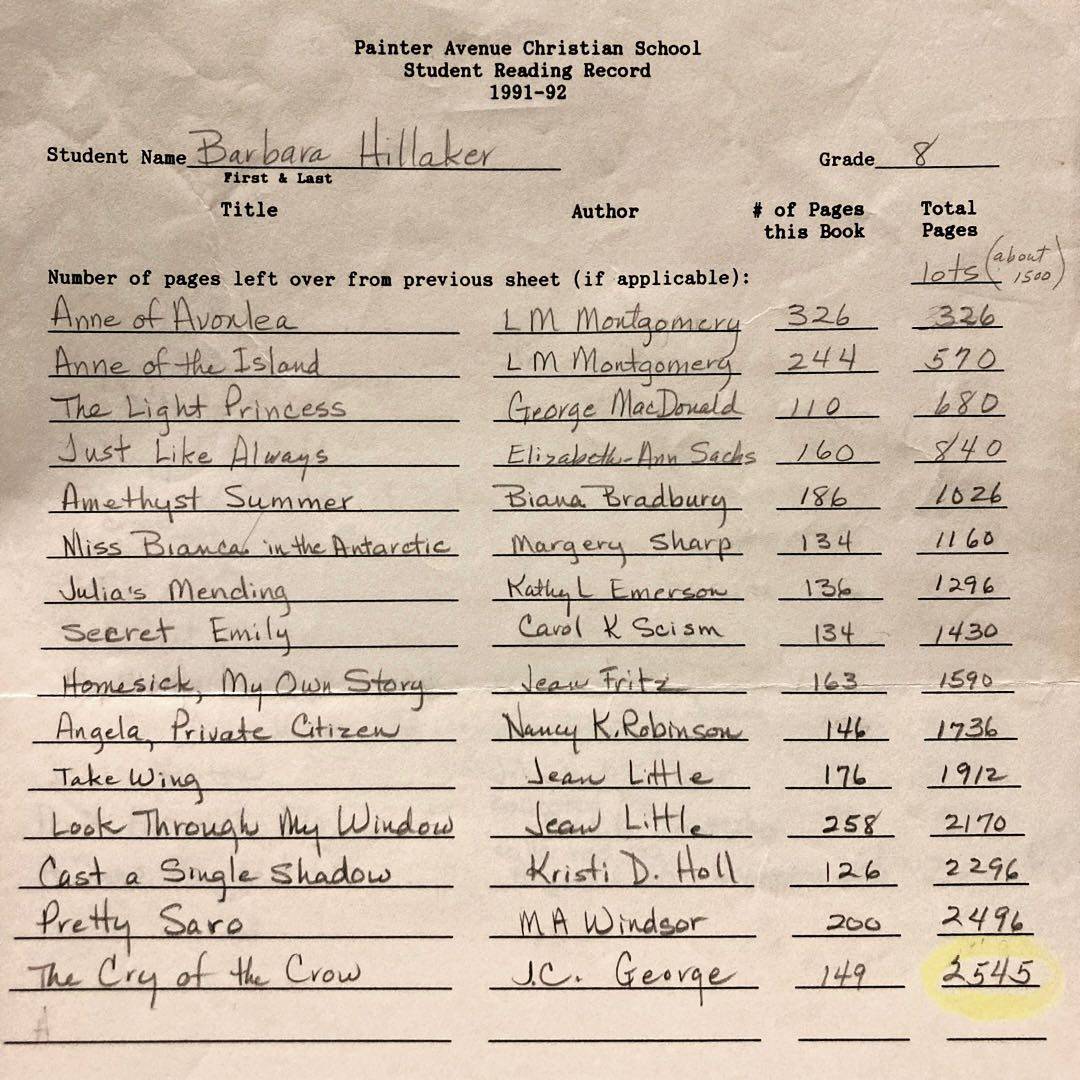 Painter Avenue Christian School
Student Reading Record
1991-92
Student Name Barbara Hillaker Grade 8
First & Last
Title Author # of Pages this Book Total Pages
Number of pages left over from previous sheet (if applicable): lots (about 1500)
Anne of Avonlea L M Montgomery 326 326
Anne of the Island L M Montgomery 244 570
The Light Princess George MacDonald 110 680
Just Like Always Elizabeth-Ann Sachs 160 840
Amethyst Summer Biana Bradbury 186 1026
Miss Bianca in the Antarctic Margery Sharp 134 1160
Julia's Mending Kathy L Emerson 136 1296
Secret Emily Carol K Scism 134 1430
Homesick, My Own Story Jean Fritz 163 1590
Angela, Private Citizen Nancy K. Robinson 146 1736
Take Wing Jean Little 176 1912
Look Through My Window Jean Little 258 2170
Cast a Single Shadow Kristi D. Holl 126 2296
Pretty Saro M A Windsor 200 2496
The Cry of the Crow J.C. George 149 2545
A